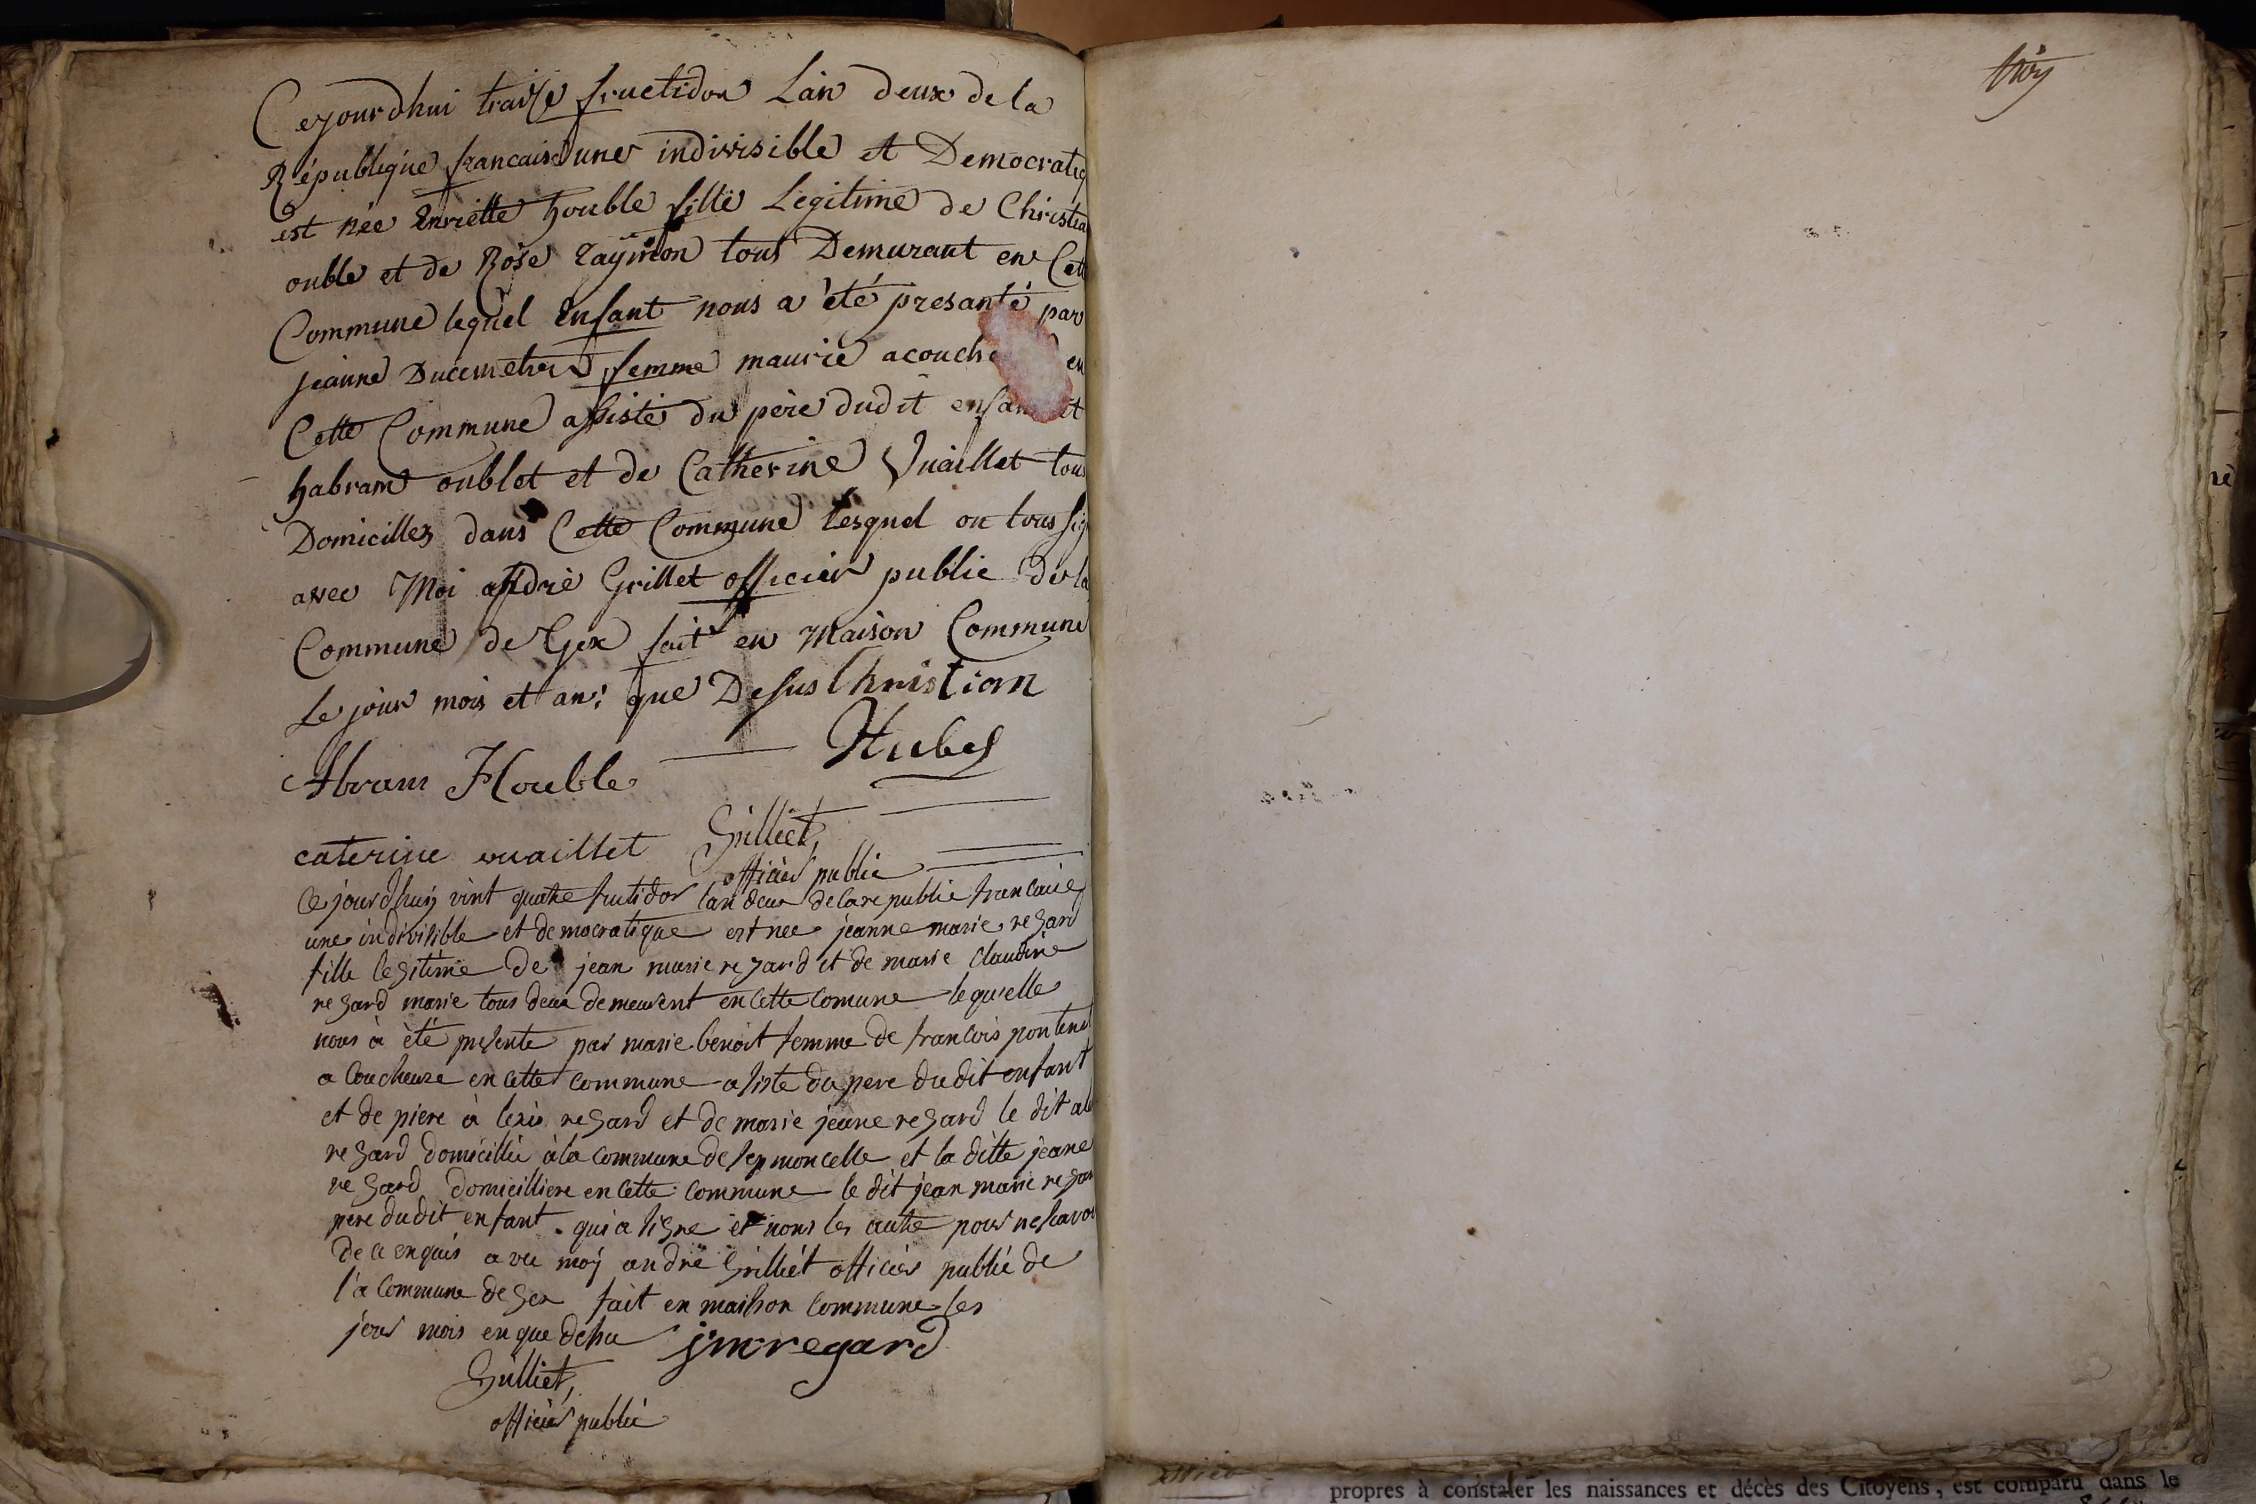 Cejourdhui traize fructidor Lan deux de la
République francaise une indivisible et Democratiq
est née Enriette houble fille Legitime de Christia
ouble et de Rose Raymon tous Demurant en Cett
Commune lequel Enfant nous a été presanté par
jeanne Ducimetier femme maurie acouch en
Cette Commune assisté du père dudit enfan et
habram oublet et de Catherine Vuaillet tous
Domicilles dans Cette Commune lesquel on tous sig
avec Moi andré Grillet officier public De la
Commune de Gex fait en Maison Commune
Le jour mois et an: que Desus Christian
Abram Houble Huber
caterine vuaillet Grilliet,
officier public
Ce jourdhuy vint quatre frutidor lan deux de la republic francaise
une indivisible et democratique est nee jeanne marie regard
fille legitime de jean marie regard et de marie claudine
regard marie tous deux demeurent en cette comune lequelle
nous à été presente par marie benoit femme de francois ponten
a coucheuze en cette commune a siste du pere du dit enfant
et de piere à lexis regard et de marie jeane regard le dit al
regard domicillié à la commune de sepmoncelle et la ditte jeane
regard domicilliere en cette commune le dit jean marie regar
pere du dit enfant qui a signe et nons les autre pour ne savoi
de ce enquis a vec moy andré Grilliet officier publié de
l'a commune de Gex fait en maison commune les
jour mois en que desu jmregard
Grilliet,
officier publié
propres à constater les naissances et décès des Citoyens, est comparu dans le